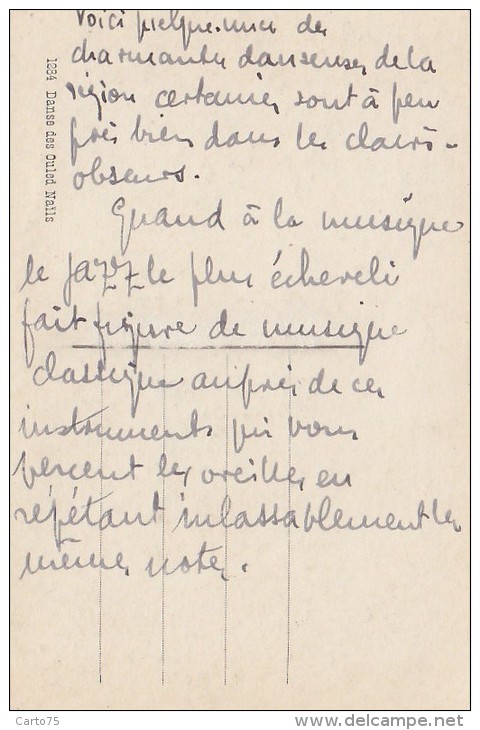 Voici quelques-unes des
charmantes danseuses de la
région certaines sont à peu
près bien dans les clairs-
obscurs.
Quand à la musique
le jazz le plus écheveli
fait figure de musique
classique auprès de ces
instruments qui vous
percent les oreilles en
répétant inlassablement les
mêmes notes.
1284 Danse des Ouled Naïls
Carto75
www.delcampe.net